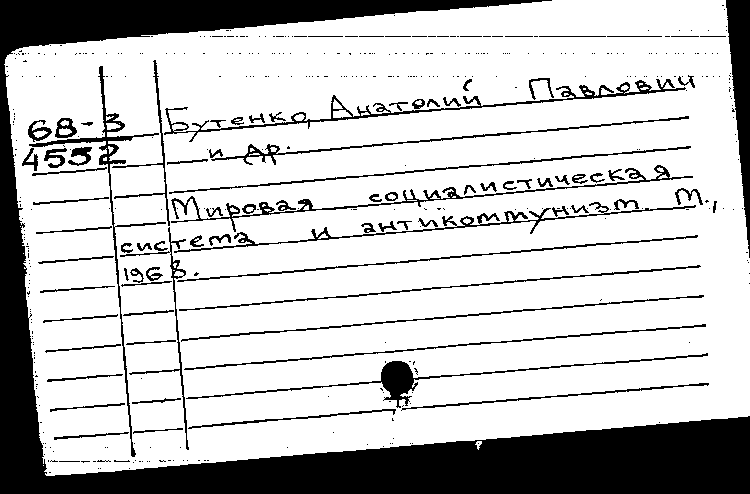 68-3
4552
Бутенко, Анатолий Павлович
и др.
Мировая социалистическая
система и антикоммунизм. М.,
1968.